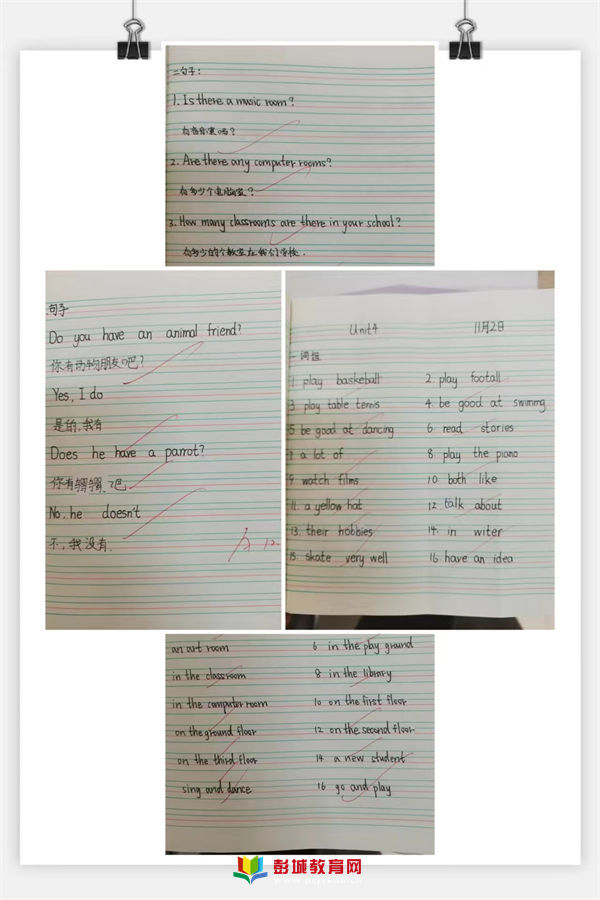 二句子：
1. Is there a music room?
有音乐室吗？
2. Are there any computer rooms?
有多少个电脑室？
3. How many classrooms are there in your school?
有多少的个教室在我们学校.
句子
Do you have an animal friend?
你有动物朋友吧？
Yes, I do
是的,我有
Does he have a parrot?
你有 吧
No, he doesn't
不,我没有.
Unit4 11月2日
一词组
1. play baskeball 2. play footall
3 play table tennis 4. be good at swimmg
5 be good at dancing 6. read stories
7 a lot of 8. play the piano
9 watch films 10. both like
11. a yellow hat 12 talk about
13. their hobbies 14. in witer
15. skate very well 16. have an idea
an art room 6 in the play ground
in the classroom 8 in the library
in the computer room 10 on the first floor
on the ground floor 12 on the second floor
on the third floor 14 a new student
sing and dance 16 go and play
彭城教育网